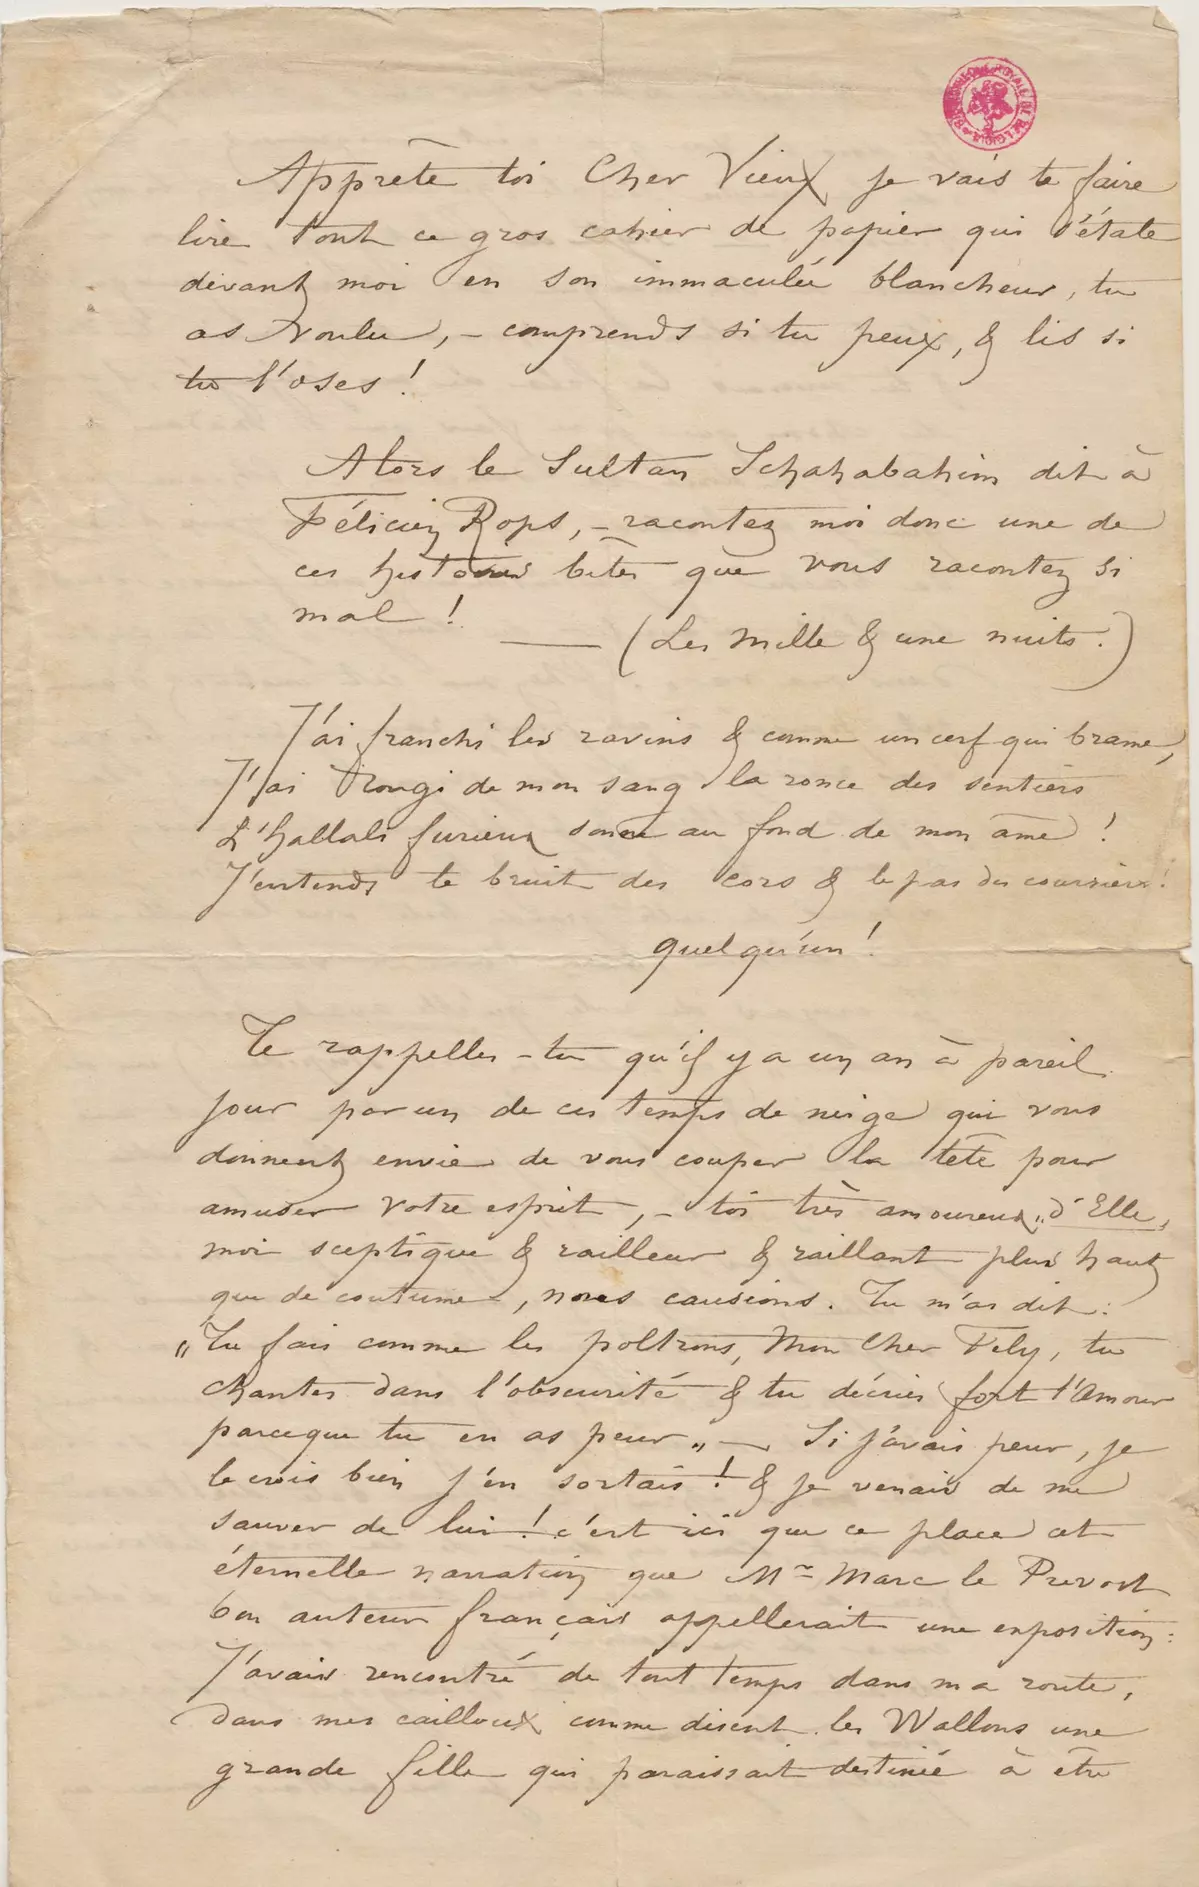 BIBLIOTHÈQUE ROYALE DE BELGIQUE
Apprête toi Cher Vieux je vais te faire
lire tout ce gros cahier de papier qui s'étale
devant moi en son immaculée blancheur, tu
as voulu, – comprends si tu peux, & lis si
tu l'oses !
Alors le Sultan Schahabahim dit à
Félicien Rops, – racontez moi donc une de
ces histoires bêtes que vous racontez si
mal !
— (Les Mille & une nuits.)
J'ai franchi les ravins & comme un cerf qui brame,
J'ai rougi de mon sang la ronce des sentiers
L'hallali furieux sonne au fond de mon âme !
J'entends le bruit des cors & le pas des coursiers !
quelqu'un !
Te rappelles-tu qu'il y a un an à pareil
jour par un de ces temps de neige qui vous
donnent envie de vous couper la tête pour
amuser votre esprit, – toi très amoureux „d'Elle„
moi sceptique & railleur & raillant plus haut
que de coutume, nous causions. Tu m'as dit :
„Tu fais comme les poltrons, Mon Cher Fely, tu
chantes dans l'obscurité & tu décries fort l'Amour
parceque tu en as peur„ – Si j'avais peur, je
le crois bien j'en sortais ! & je venais de me
sauver de lui ! c'est ici que ce place cet
éternelle narration que Mr Marc le Prevost
bon auteur français appellerait une exposition :
J'avais rencontré de tout temps dans ma route,
dans mes cailloux comme disent les Wallons une
grande fille qui paraissait destinée à être